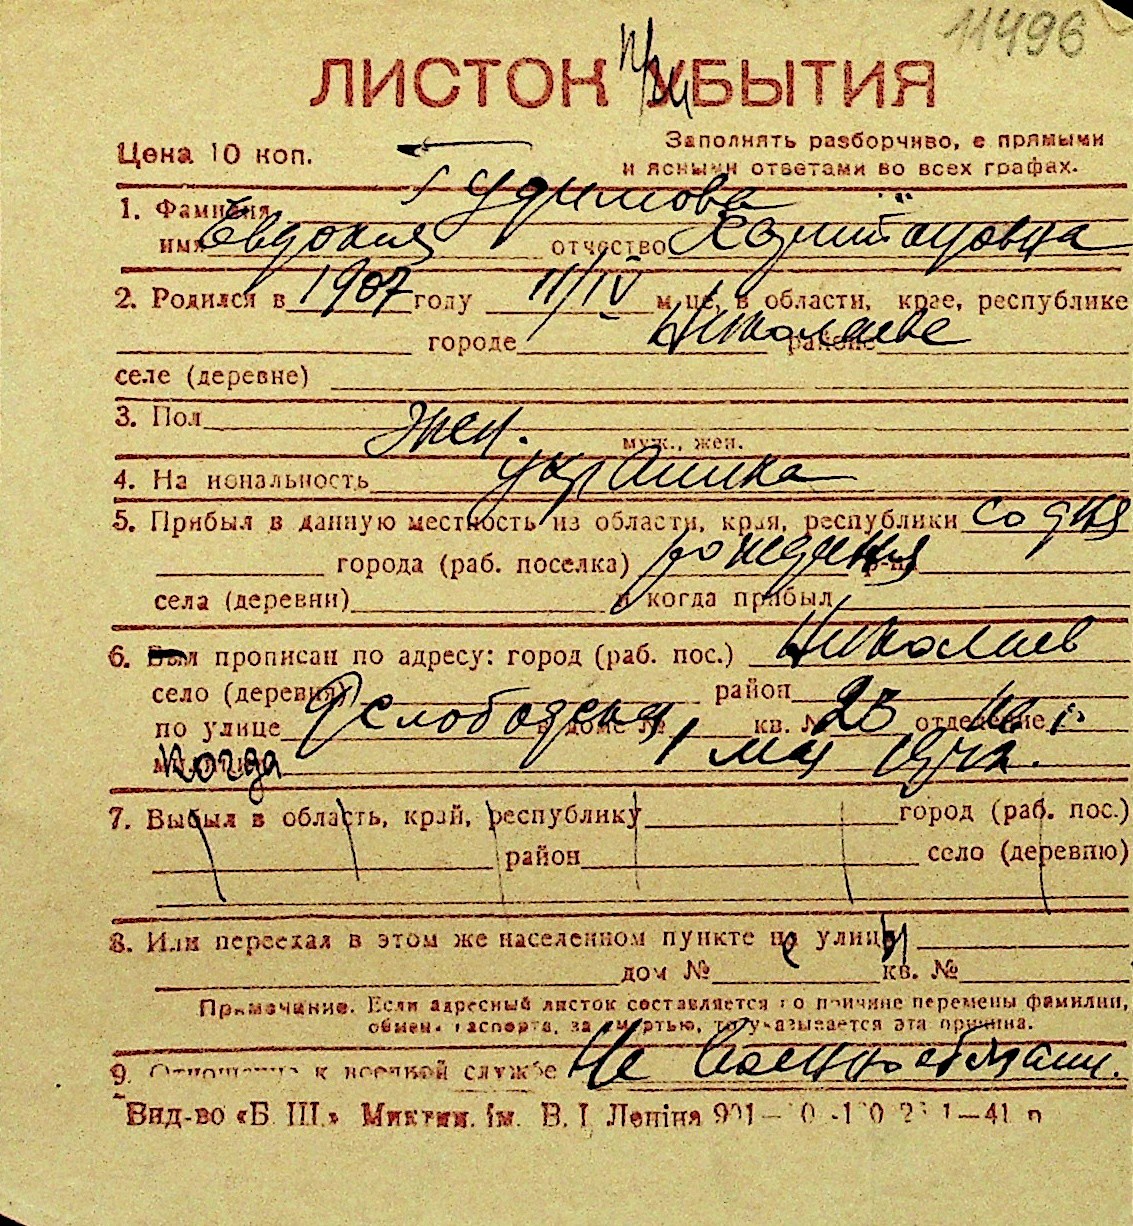 11496
ЛИСТОК УБЫТИЯ
Цена 10 коп.
Заполнять разборчиво, с прямыми
и ясными ответами во всех графах.
1. Фамилия Гудимова
имя Евдокия отчество Харитоновна
2. Родился в 1907 году 11/IV м-це, в области, крае, республике
городе Николаеве районе
селе (деревне)
3. Пол жен.
муж., жен.
4. Национальность украинка
5. Прибыл в данную местность из области, края, республики со дня
города (раб. поселка) рождения р-на
села (деревни) и когда прибыл
6. Был прописан по адресу: город (раб. пос.) Николаев
село (деревня) район
по улице Слободская, в доме № кв. № 23 отделение
Когда 1 мая 1942.
7. Выбыл в область, край, республику город (раб. пос.)
район село (деревню)
8. Или переехал в этом же населенном пункте на улицу
дом № кв. №
Примечание. Если адресный листок составляется по причине перемены фамилии,
обмена паспорта, за смертью, то указывается эта причина.
9. Отношение к военной службе Не военнообязан.
Вид-во «Б. Ш.» Миктип. ім. В. І. Леніна